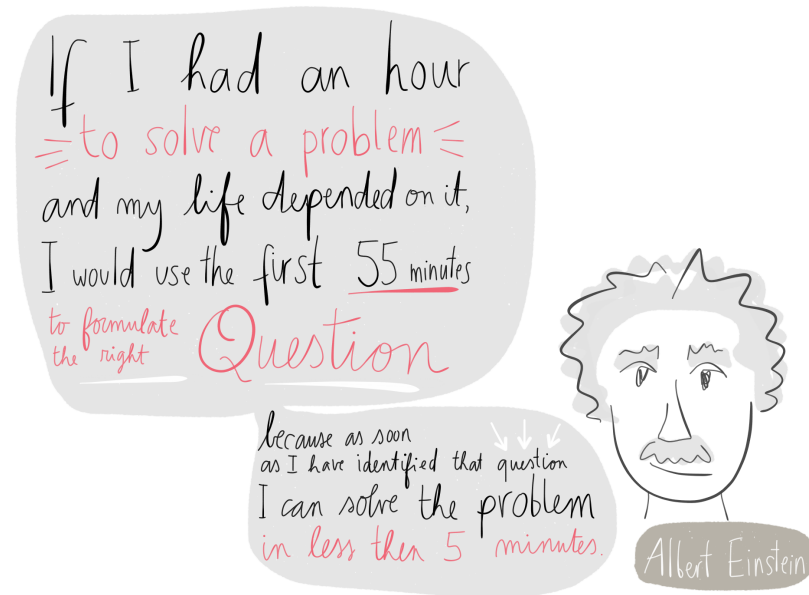 If I had an hour
to solve a problem
and my life depended on it,
I would use the first 55 minutes
to formulate
the right Question
because as soon
as I have identified that question
I can solve the problem
in less then 5 minutes.
Albert Einstein